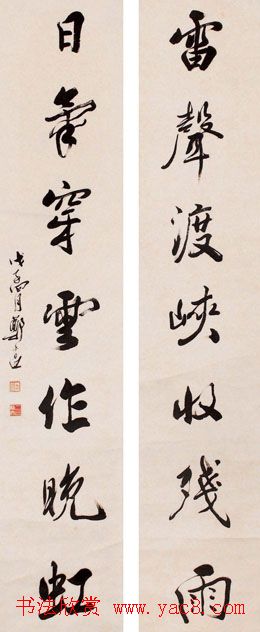 雷聲渡峽收残雨
日氣穿雲作晚虹
书法欣赏 www.yac8.com